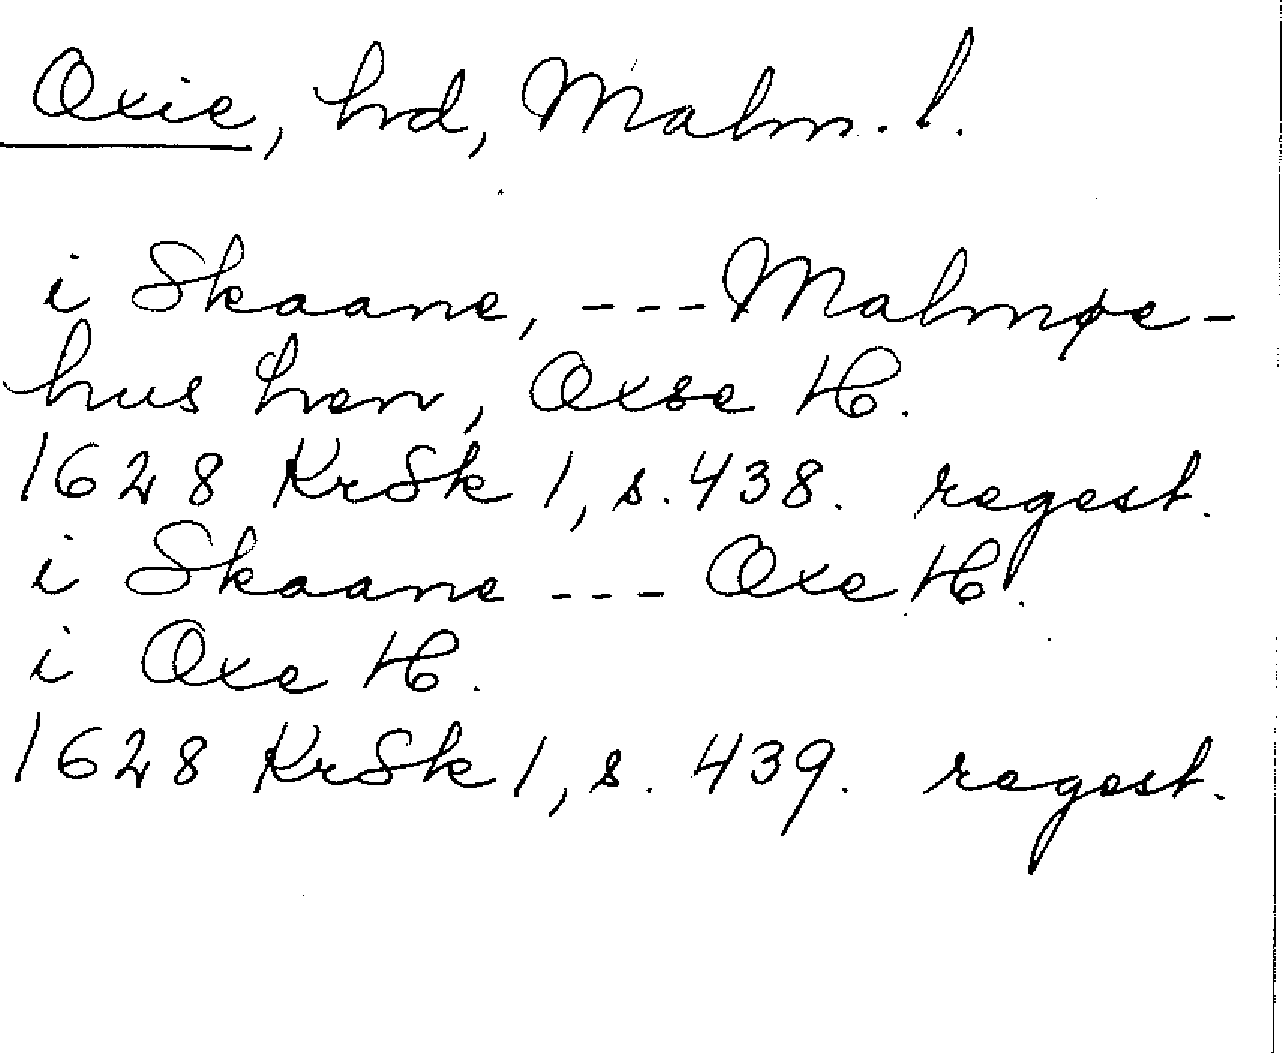 Oxie, hrd, Malm. l.
i Skaane, --- Malmøe-
hus Len, Oxse H.
1628 KrSk 1, s. 438. regest.
i Skaane --- Oxe H.
i Oxe H.
1628 KrSk 1, s. 439. regest.